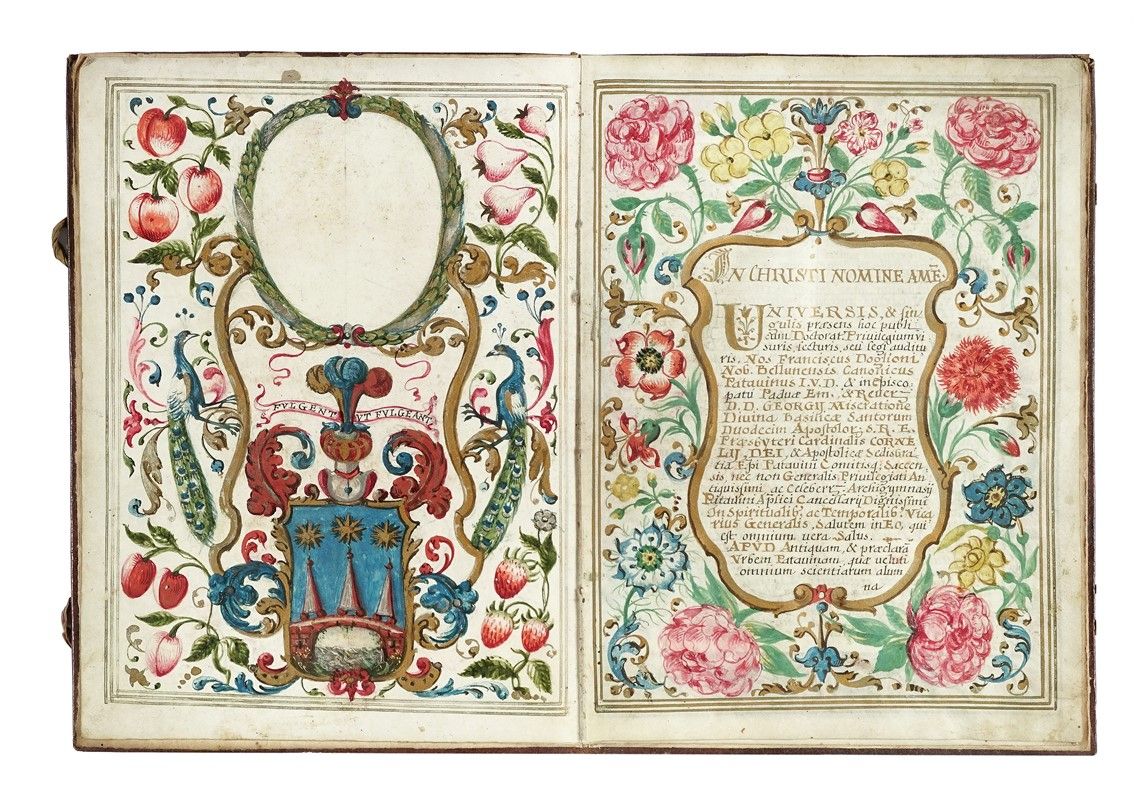 FVLGENT VT FVLGEANT
IN CHRISTI NOMINE AMẼ.
UNIVERSIS, & sin,
gulis præsens hoc publi,
cum Doctorat, Privilegium vi
suris, lecturis, seu legi auditu
ris. Nos Franciscus Doglioni
Nob. Bellunensis Canonicus
Patavinus I.V.D. & in episco,
patu Paduæ Em. & Rever.
D.D. GEORGIJ Miseratione
Divina Basilicæ Santorum
Duodecim Apostolor, S.R.E.
Præsbyteri Cardinalis CORNE
LIJ, DEI, & Apostolicæ Sedis Gra,
tia Epi Patavini Comitisq; Saccen,
sis, nec non Generalis Privilegiati An,
tiquissimi ac Celeberr. Archigymnasij
Patavini Aplici Cancellarij Dignissimi
In Spiritualib, ac Temporalib, Vica
rius Generalis, Salutem in Eo, qui
est omnium vera Salus.
APVD Antiquam, & præclarã
Vrbem Patavinam, quæ veluti
omnium scientiarum alum
na